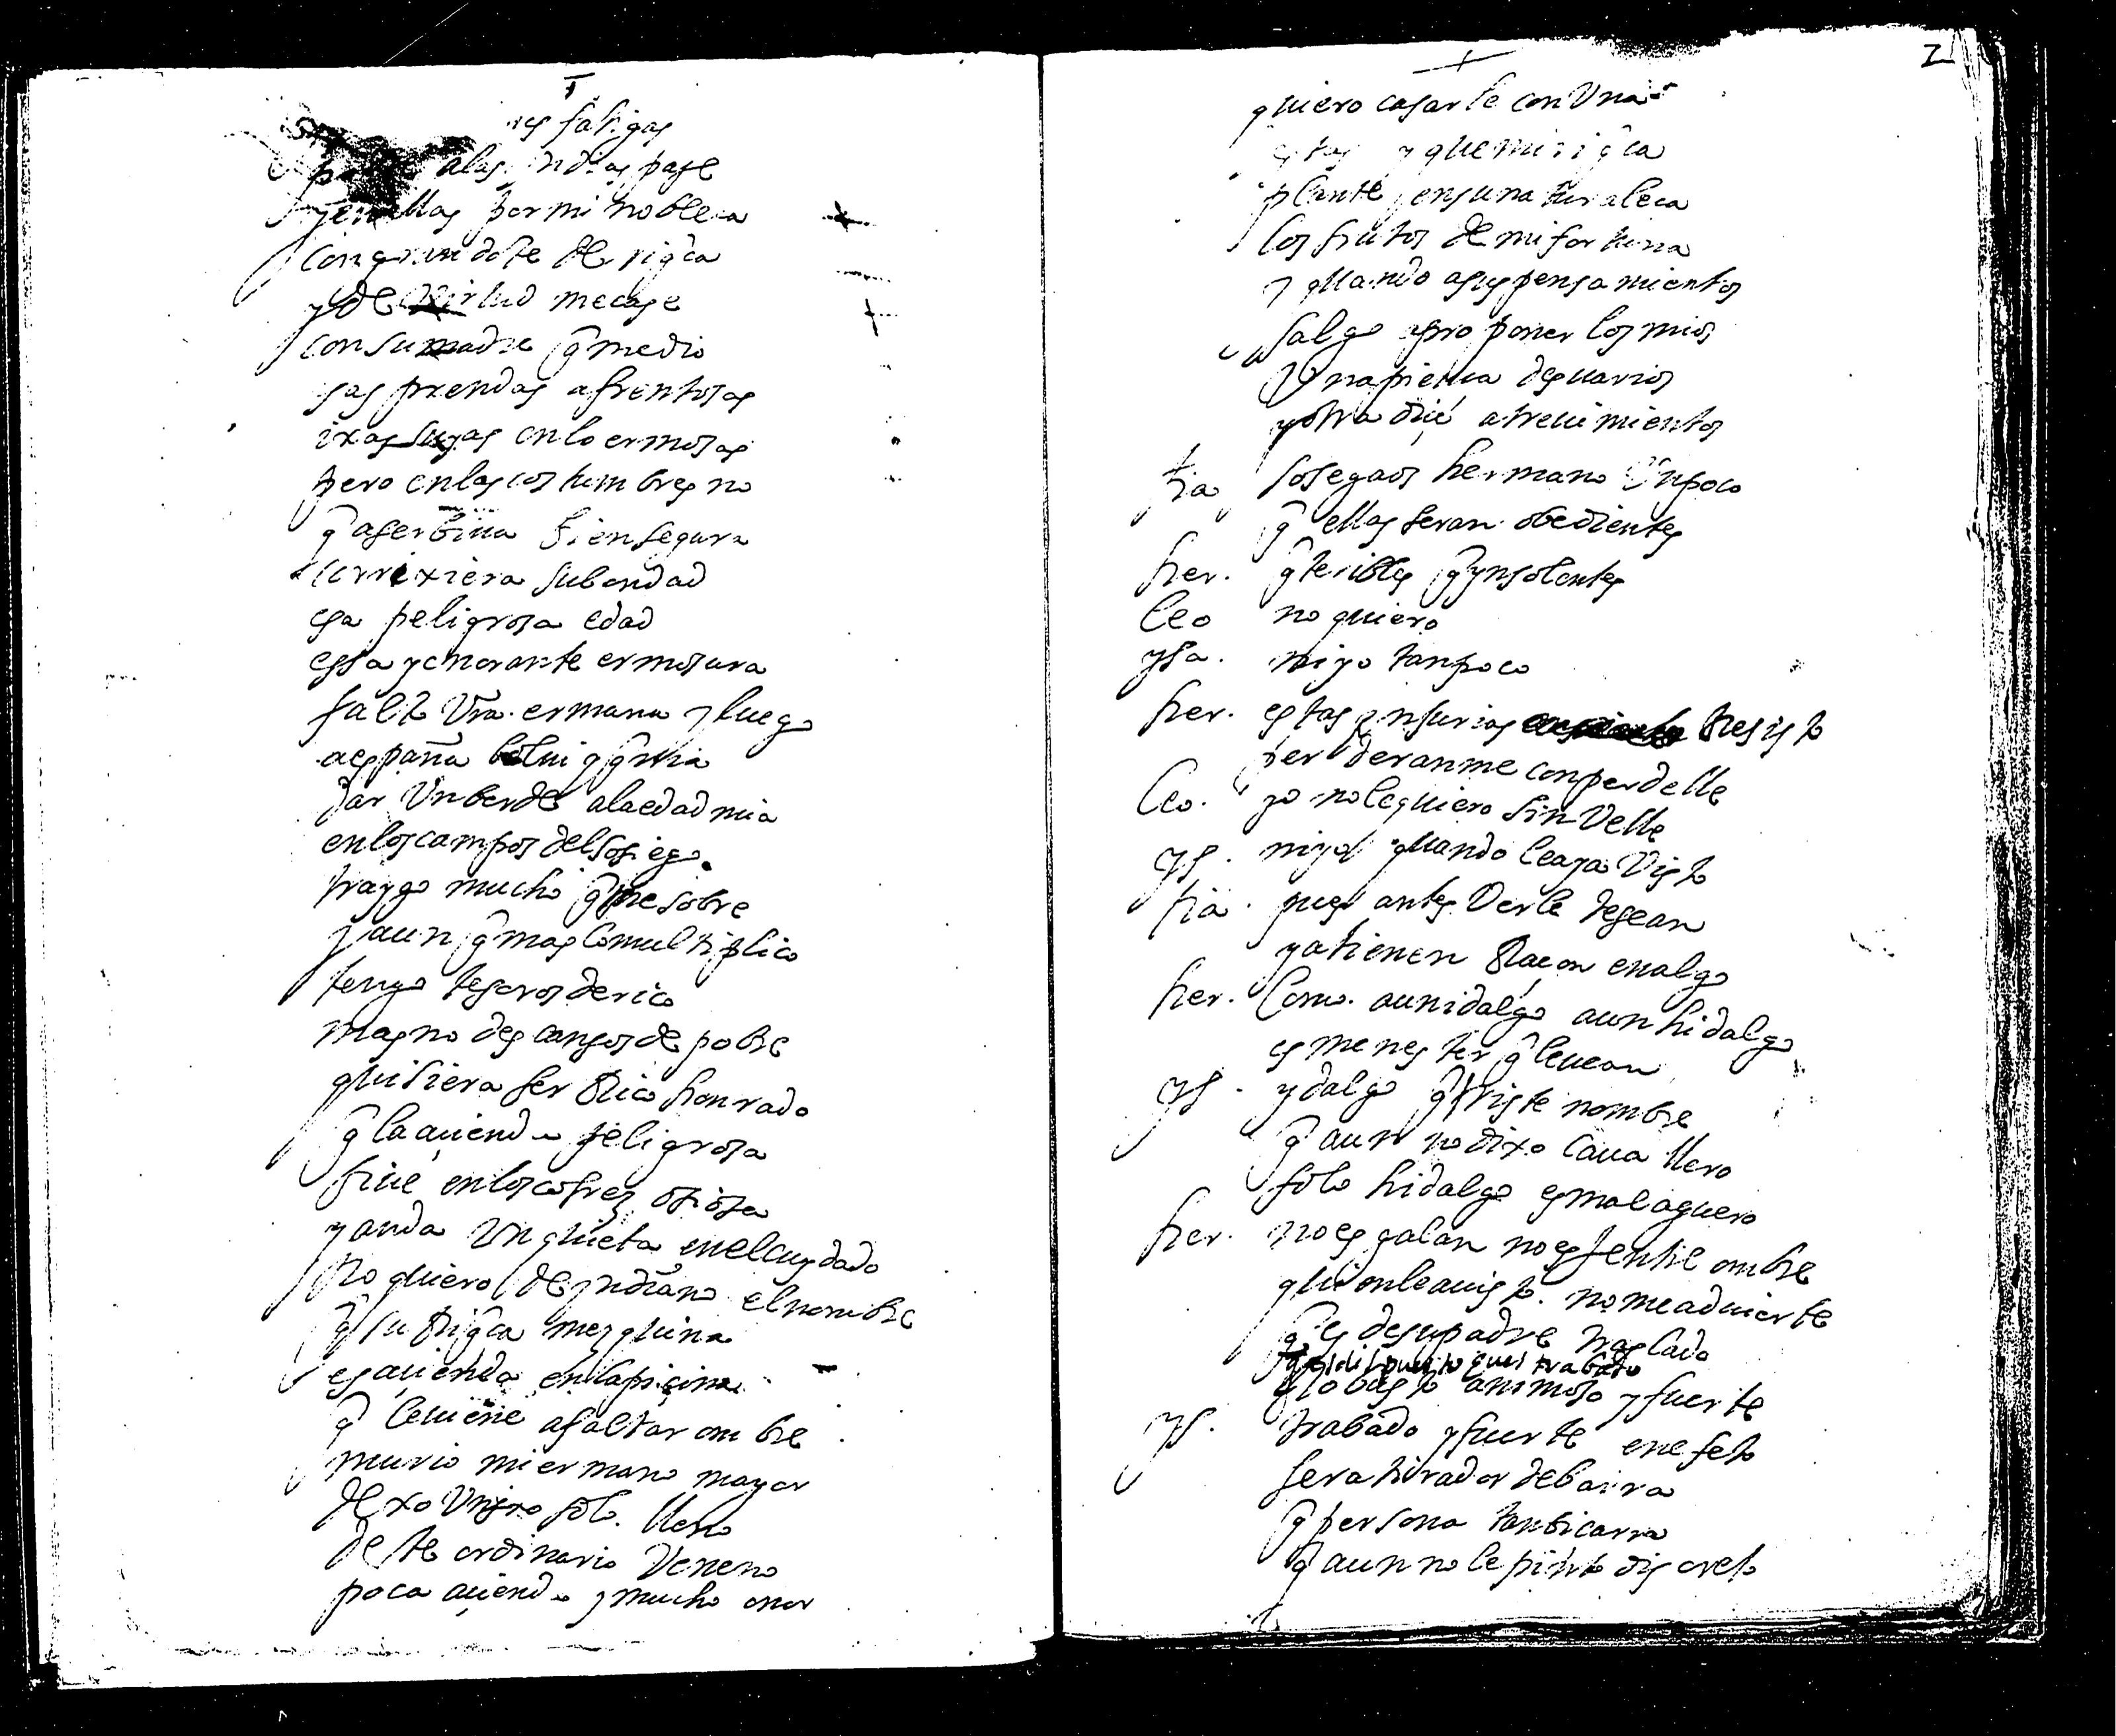 fatigas
a las indias pase
y en ellas por mi nobleca
con gran dote de riq̃ca
y de virtud me case
con su madre q̃ me dio
esas prendas afrentosas
ixas suyas en lo ermosas
pero en las costumbres no
q̃ a ser biua bien segura
corrixiera su bondad
esa peligrosa edad
essa ygnorante ermosura
falto vr̃a ermana y luego
a españa bolui q̃ q̃ria
dar vn berde a la edad mia
en los campos del sosiego
traygo mucho q̃ me sobre
y aun q̃ mas lo multiplico
tengo tesoros de rico
mas no descansos de pobre
quisiera ser Rico honrado
q̃ la açienda peligrosa
biue en los cofres osiosa
y anda ynquieta en el cuydado
no quiero de yndiano el nombre
q̃ su Riq̃ca mezquina
es açienda en la piçina
q̃ le uiene a faltar ombre
murio mi ermano mayor
dexo vn ixo solo lleno
deste ordinario veneno
poca açienda y mucho onor
2
quiero casarle con vna
destas y que mi riq̃ca
plante en su naturaleca
los frutos de mi fortuna
y quando a sus pensamientos
salgo a proponer los mios
vna piensa desuarios
y otra diçe atreuimientos
tia sosegaos hermano vn poco
q̃ ellas seran obedientes
her. q̃ teribles q̃ ynsolentes
leo no quiero
ysa. ni yo tanpoco
her. estas ynjurias Resisto
perderanme con perdelle
leo. yo no le quiero sin velle
ys. ni yo quando le aya visto
tia. pues antes verle desean
ya tienen Raçon en algo
her. como. a un idalgo a un hidalgo
es menester q̃ le uean
ys. ydalgo q̃ triste nombre
q̃ aun no dixo cauallero
solo hidalgo es mal aguero
her. no es galan no es jentil ombre
quien le a uisto no me aduierte
q̃ es de su padre traslado
q̃ es dispuesto q̃ es trabado
q̃ lo basto animoso y fuerte
ys. trabado y fuerte en efeto
sera tirador de barra
q̃ persona tan bicarra
q̃ aun no le pinto discreto